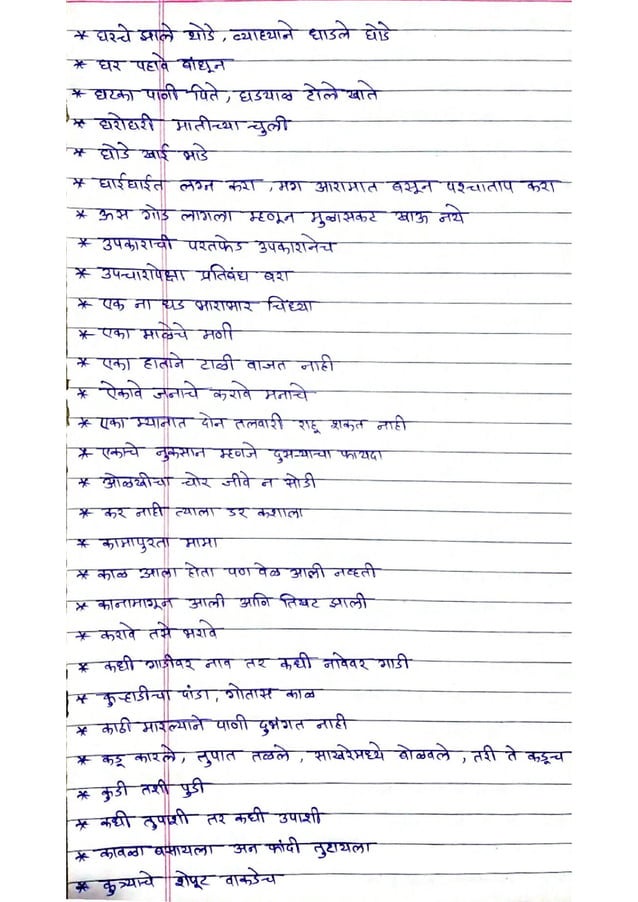 * घरचे झाले थोडे, व्याह्याने धाडले घोडे
* घर पहावे बांधून
* घटका पाणी पिते, घडयाळ टोले खाते
* घरोघरी मातीच्या चुली
* घोडे खाई भाडे
* घाईघाईत लग्न करा, मग आरामात बसून पश्चाताप करा
* ऊस गोड लागला म्हणून मुळासकट खाऊ नये
* उपकाराची परतफेड उपकारानेच
* उपचारापेक्षा प्रतिबंध बरा
* एक ना धड भाराभार चिंध्या
* एका माळेचे मणी
* एका हाताने टाळी वाजत नाही
* ऐकावे जनाचे करावे मनाचे
* एका म्यानात दोन तलवारी राहू शकत नाही
* एकाचे नुकसान म्हणजे दुसऱ्याचा फायदा
* ओळखीचा चोर जीवे न सोडी
* कर नाही त्याला डर कशाला
* कामापुरता मामा
* काळ आला होता पण वेळ आली नव्हती
* कानामागून आली आणि तिखट झाली
* करावे तसे भरावे
* कधी गाडीवर नाव तर कधी नावेवर गाडी
* कुऱ्हाडीचा दांडा, गोतास काळ
* काठी मारल्याने पाणी दुभंगत नाही
* कडू कारले, तुपात तळले, साखरेमध्ये घोळवले, तरी ते कडूच
* कुडी तशी पुडी
* कधी तुपाशी तर कधी उपाशी
* कावळा बसायला अन फांदी तुटायला
* कुत्र्याचे शेपूट वाकडेच